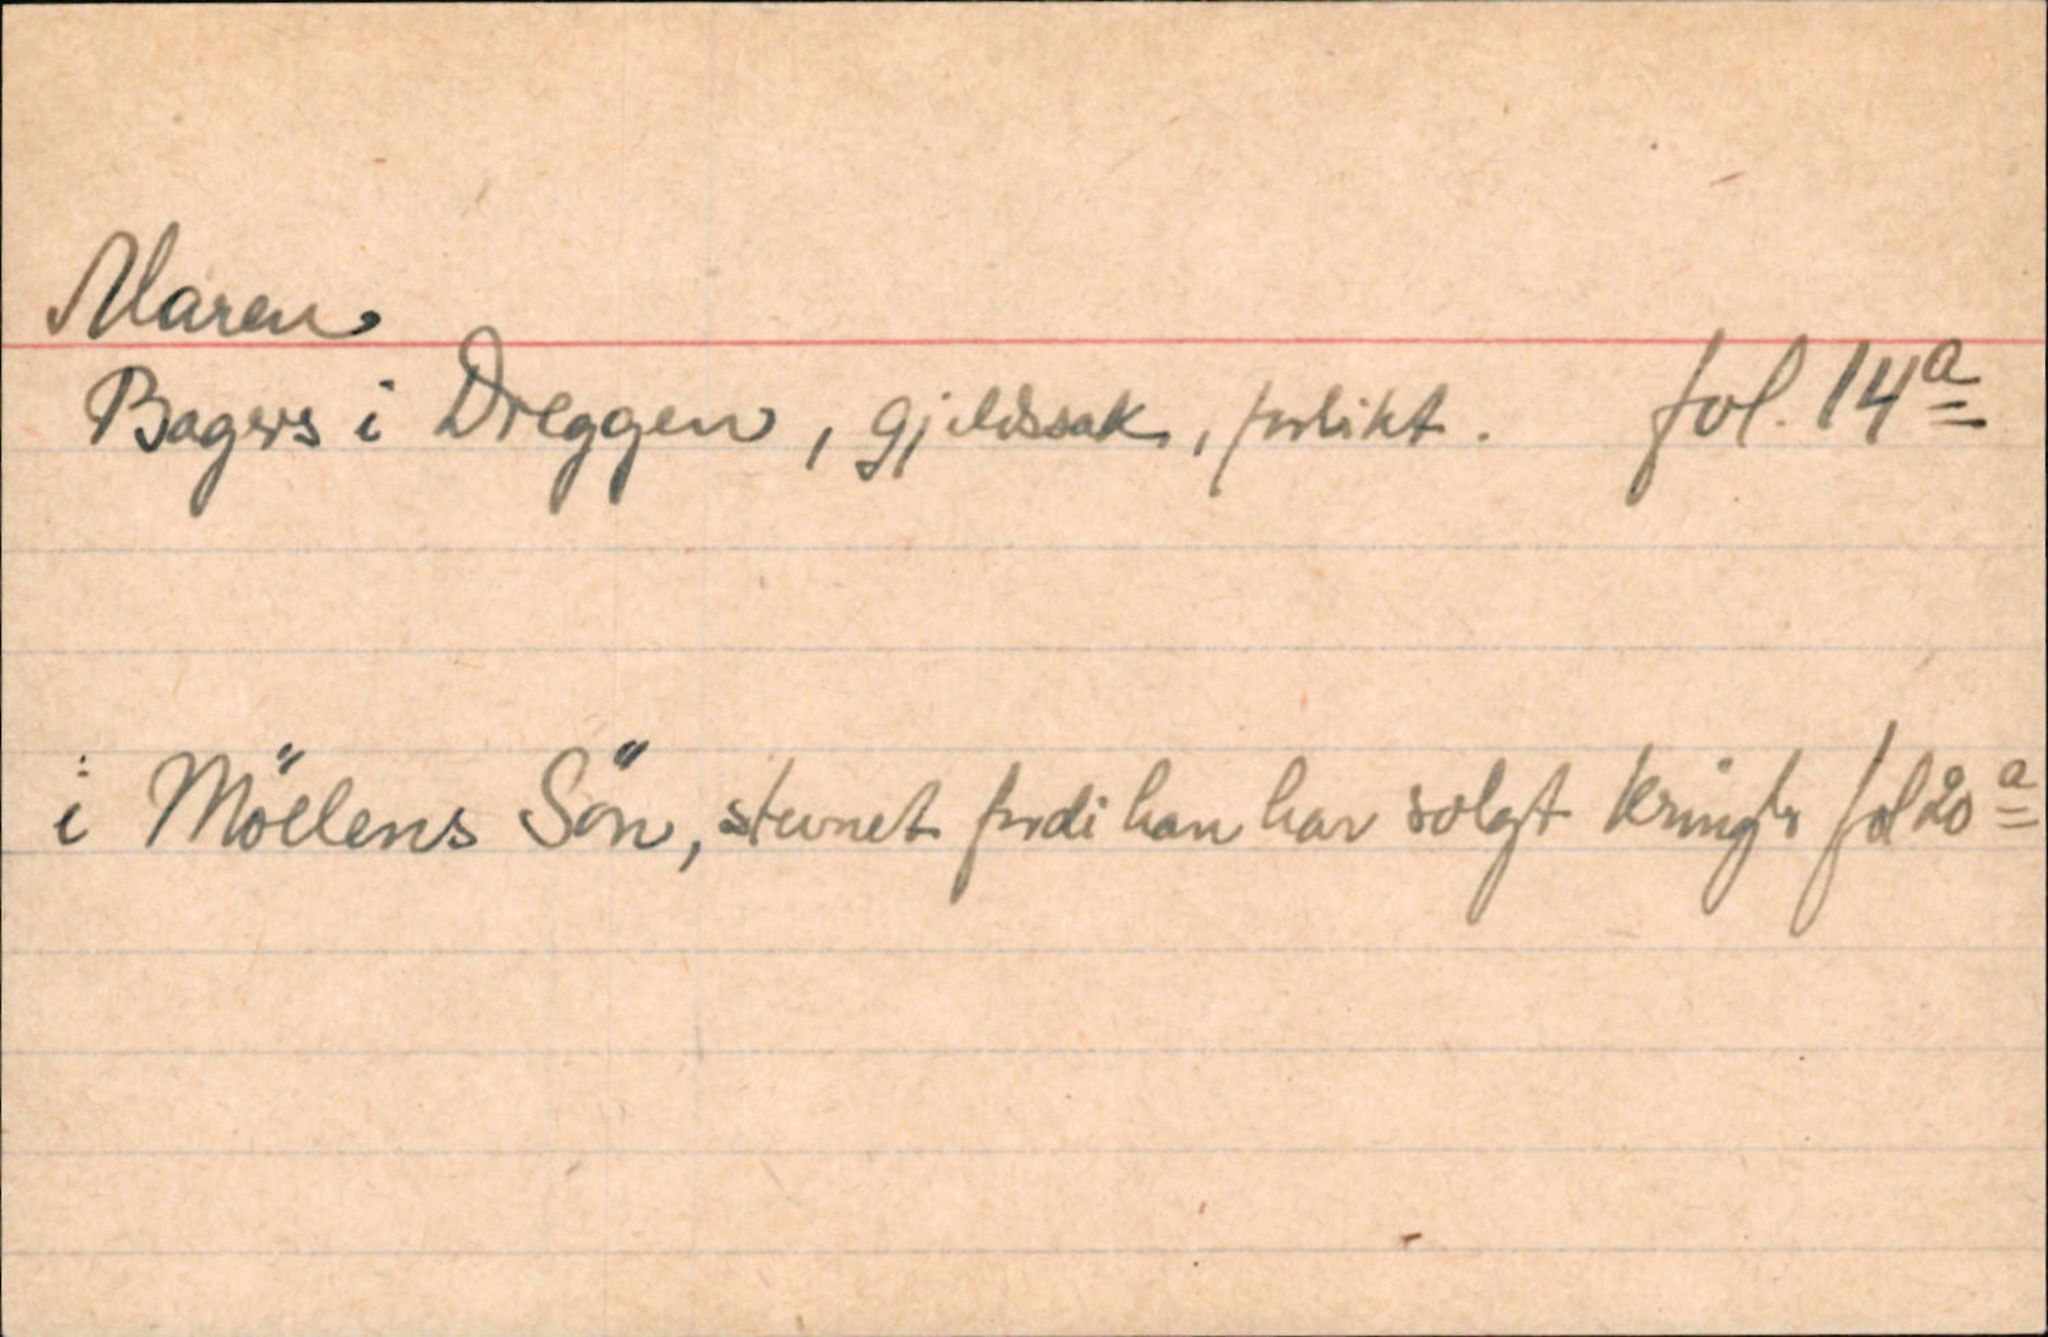 Maren
Bagers i Dreggen, gjeldssak, forlikt. fol. 14a
i Möllens Sön, stevnet fordi han har solgt kringler fol 20a